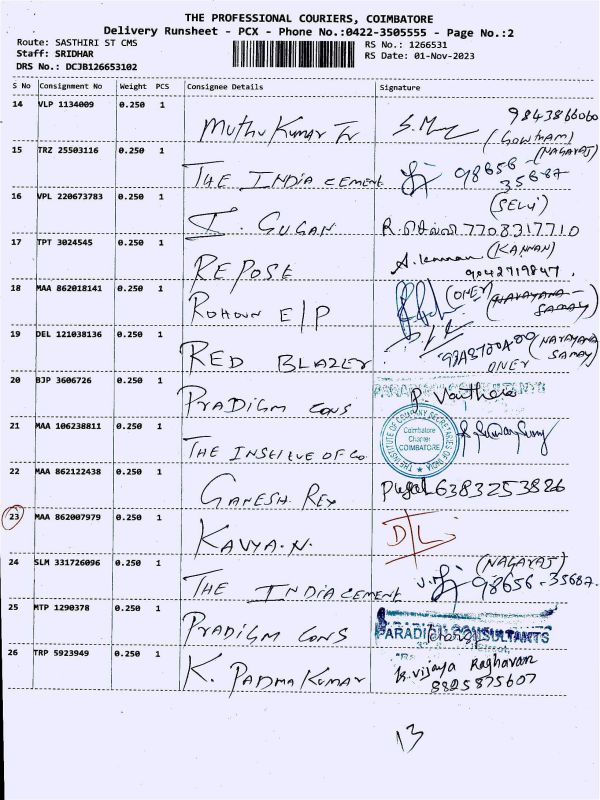 THE PROFESSIONAL COURIERS, COIMBATORE
Delivery Runsheet - PCX - Phone No.:0422-3505555 - Page No.:2
Route: SASTHIRI ST CMS RS No.: 1266531
Staff: SRIDHAR RS Date: 01-Nov-2023
DRS No.: DCJB126653102
S No Consignment No Weight PCS Consignee Details Signature
14 VLP 1134009 0.250 1
Muthu Kumar Tr 9843866060
(GOWTHAM)
15 TRZ 25503116 0.250 1 (NAGARAJ)
THE INDIA CEMENT 98656-35687
16 VPL 220673783 0.250 1 (SELVI)
I. GUGAN 7708317710
17 TPT 3024545 0.250 1 (KANNAN)
REPOSE A. Kannan 9042719847.
18 MAA 862018141 0.250 1 (ONER)
ROHOUN E/P
19 DEL 121038136 0.250 1 (NARAYANA SAMAY)
RED BLAZER ONER
20 BJP 3606726 0.250 1
PRADIGM CONS
21 MAA 106238811 0.250 1
THE INSTITUE OF CO
THE INSTITUTE OF COMPANY SECRETARIES OF INDIA
Coimbatore
Chapter
COIMBATORE
22 MAA 862122438 0.250 1
GANESH. REX Pugal 6383253826
23 MAA 862007979 0.250 1
KAVYA.N. D/L
24 SLM 331726096 0.250 1 (NAGARAJ)
THE INDIA CEMENT 98656-35687.
25 MTP 1290378 0.250 1
PRADIGM CONS PARADIGM CONSULTANTS
26 TRP 5923949 0.250 1
K. PADMA KUMAR K. Vijaya Raghavan
8825875607
13